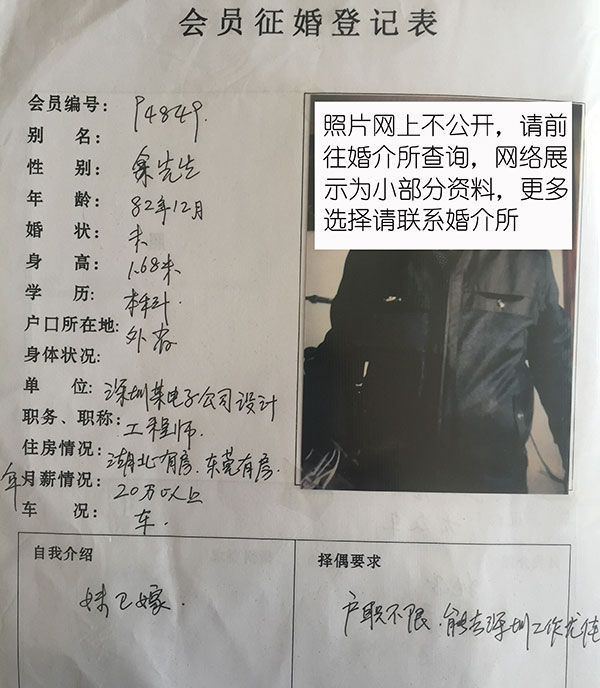 会员征婚登记表
会员编号: P4849.
别 名:
性 别: 余先生
年 龄: 82年12月
婚 状: 未
身 高: 1.68米
学 历: 本科.
户口所在地: 外省
身体状况:
单 位: 深圳某电子公司设计
职务、职称: 工程师.
住房情况: 湖北有房.东莞有房.
年月薪情况: 20万以上
车 况: 车.
照片网上不公开，请前
往婚介所查询，网络展
示为小部分资料，更多
选择请联系婚介所
自我介绍
妹已嫁.
择偶要求
户职不限.能去深圳工作尤佳